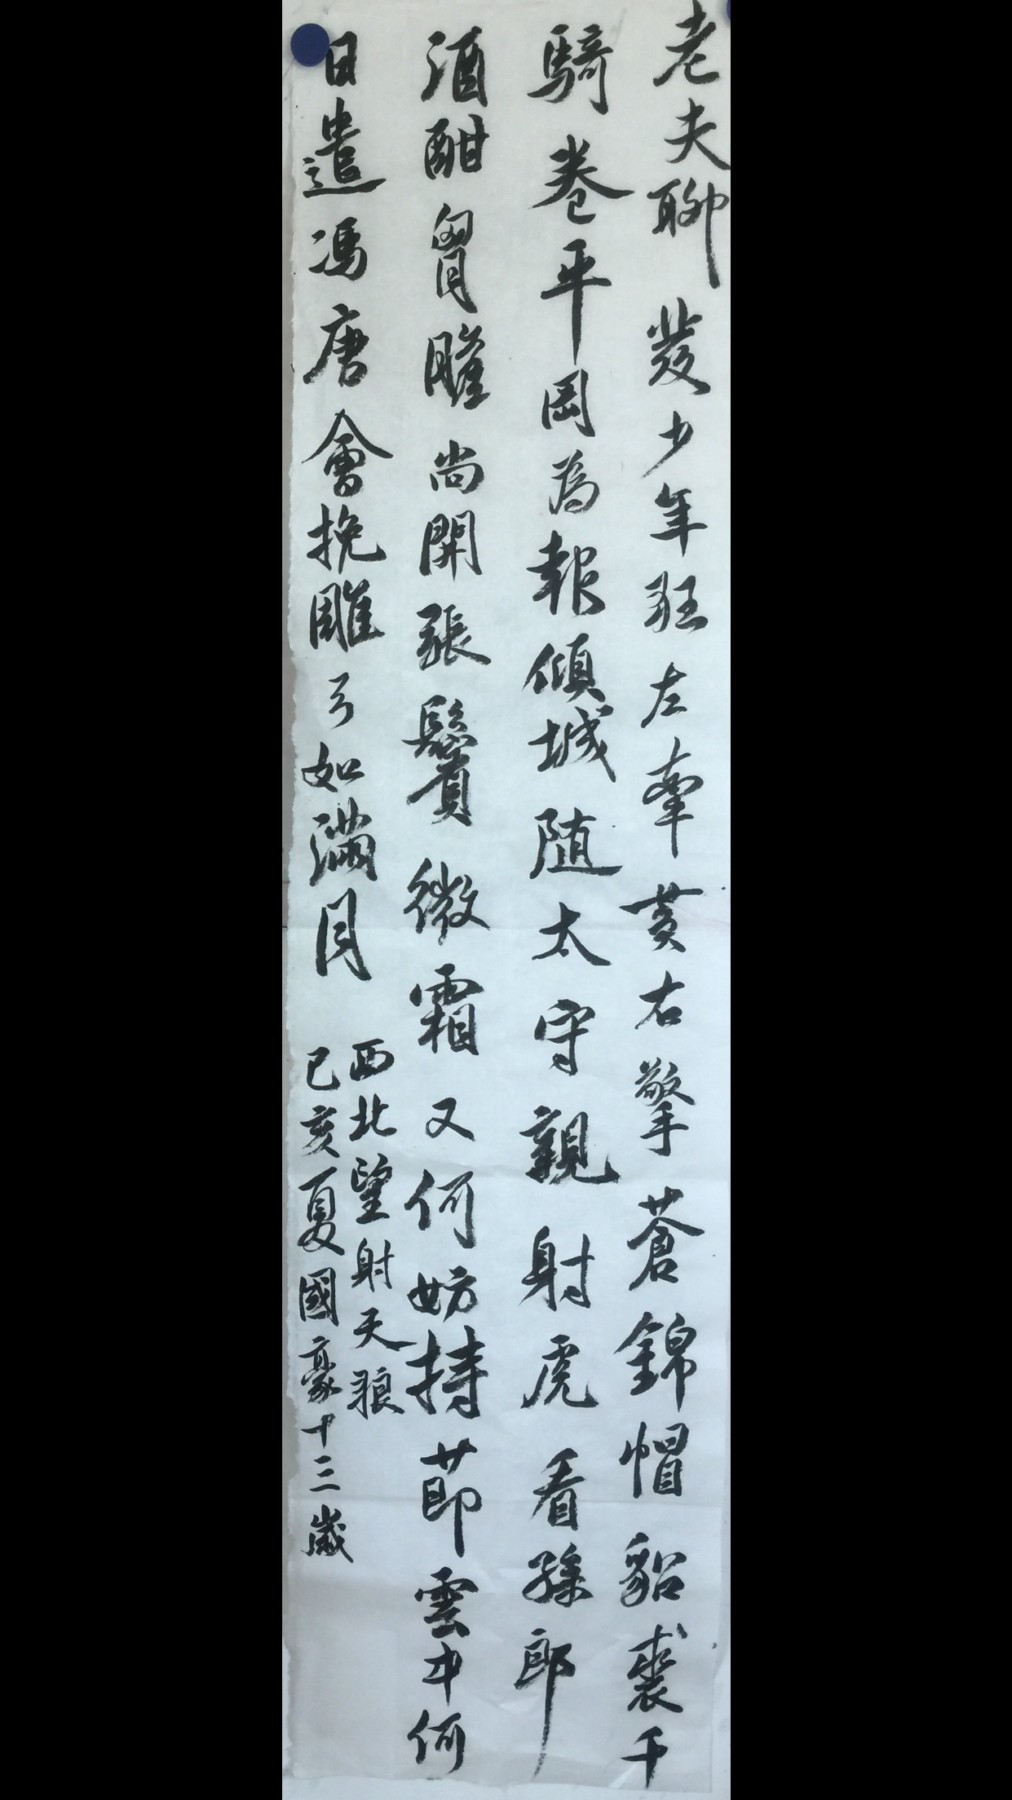 老夫聊發少年狂左牽黃右擎蒼錦帽貂裘千
騎卷平岡為報傾城隨太守親射虎看孫郎
酒酣胷膽尚開張鬢微霜又何妨持節雲中何
日遣馮唐會挽雕弓如滿月
西北望射天狼
己亥夏國豪十三歲